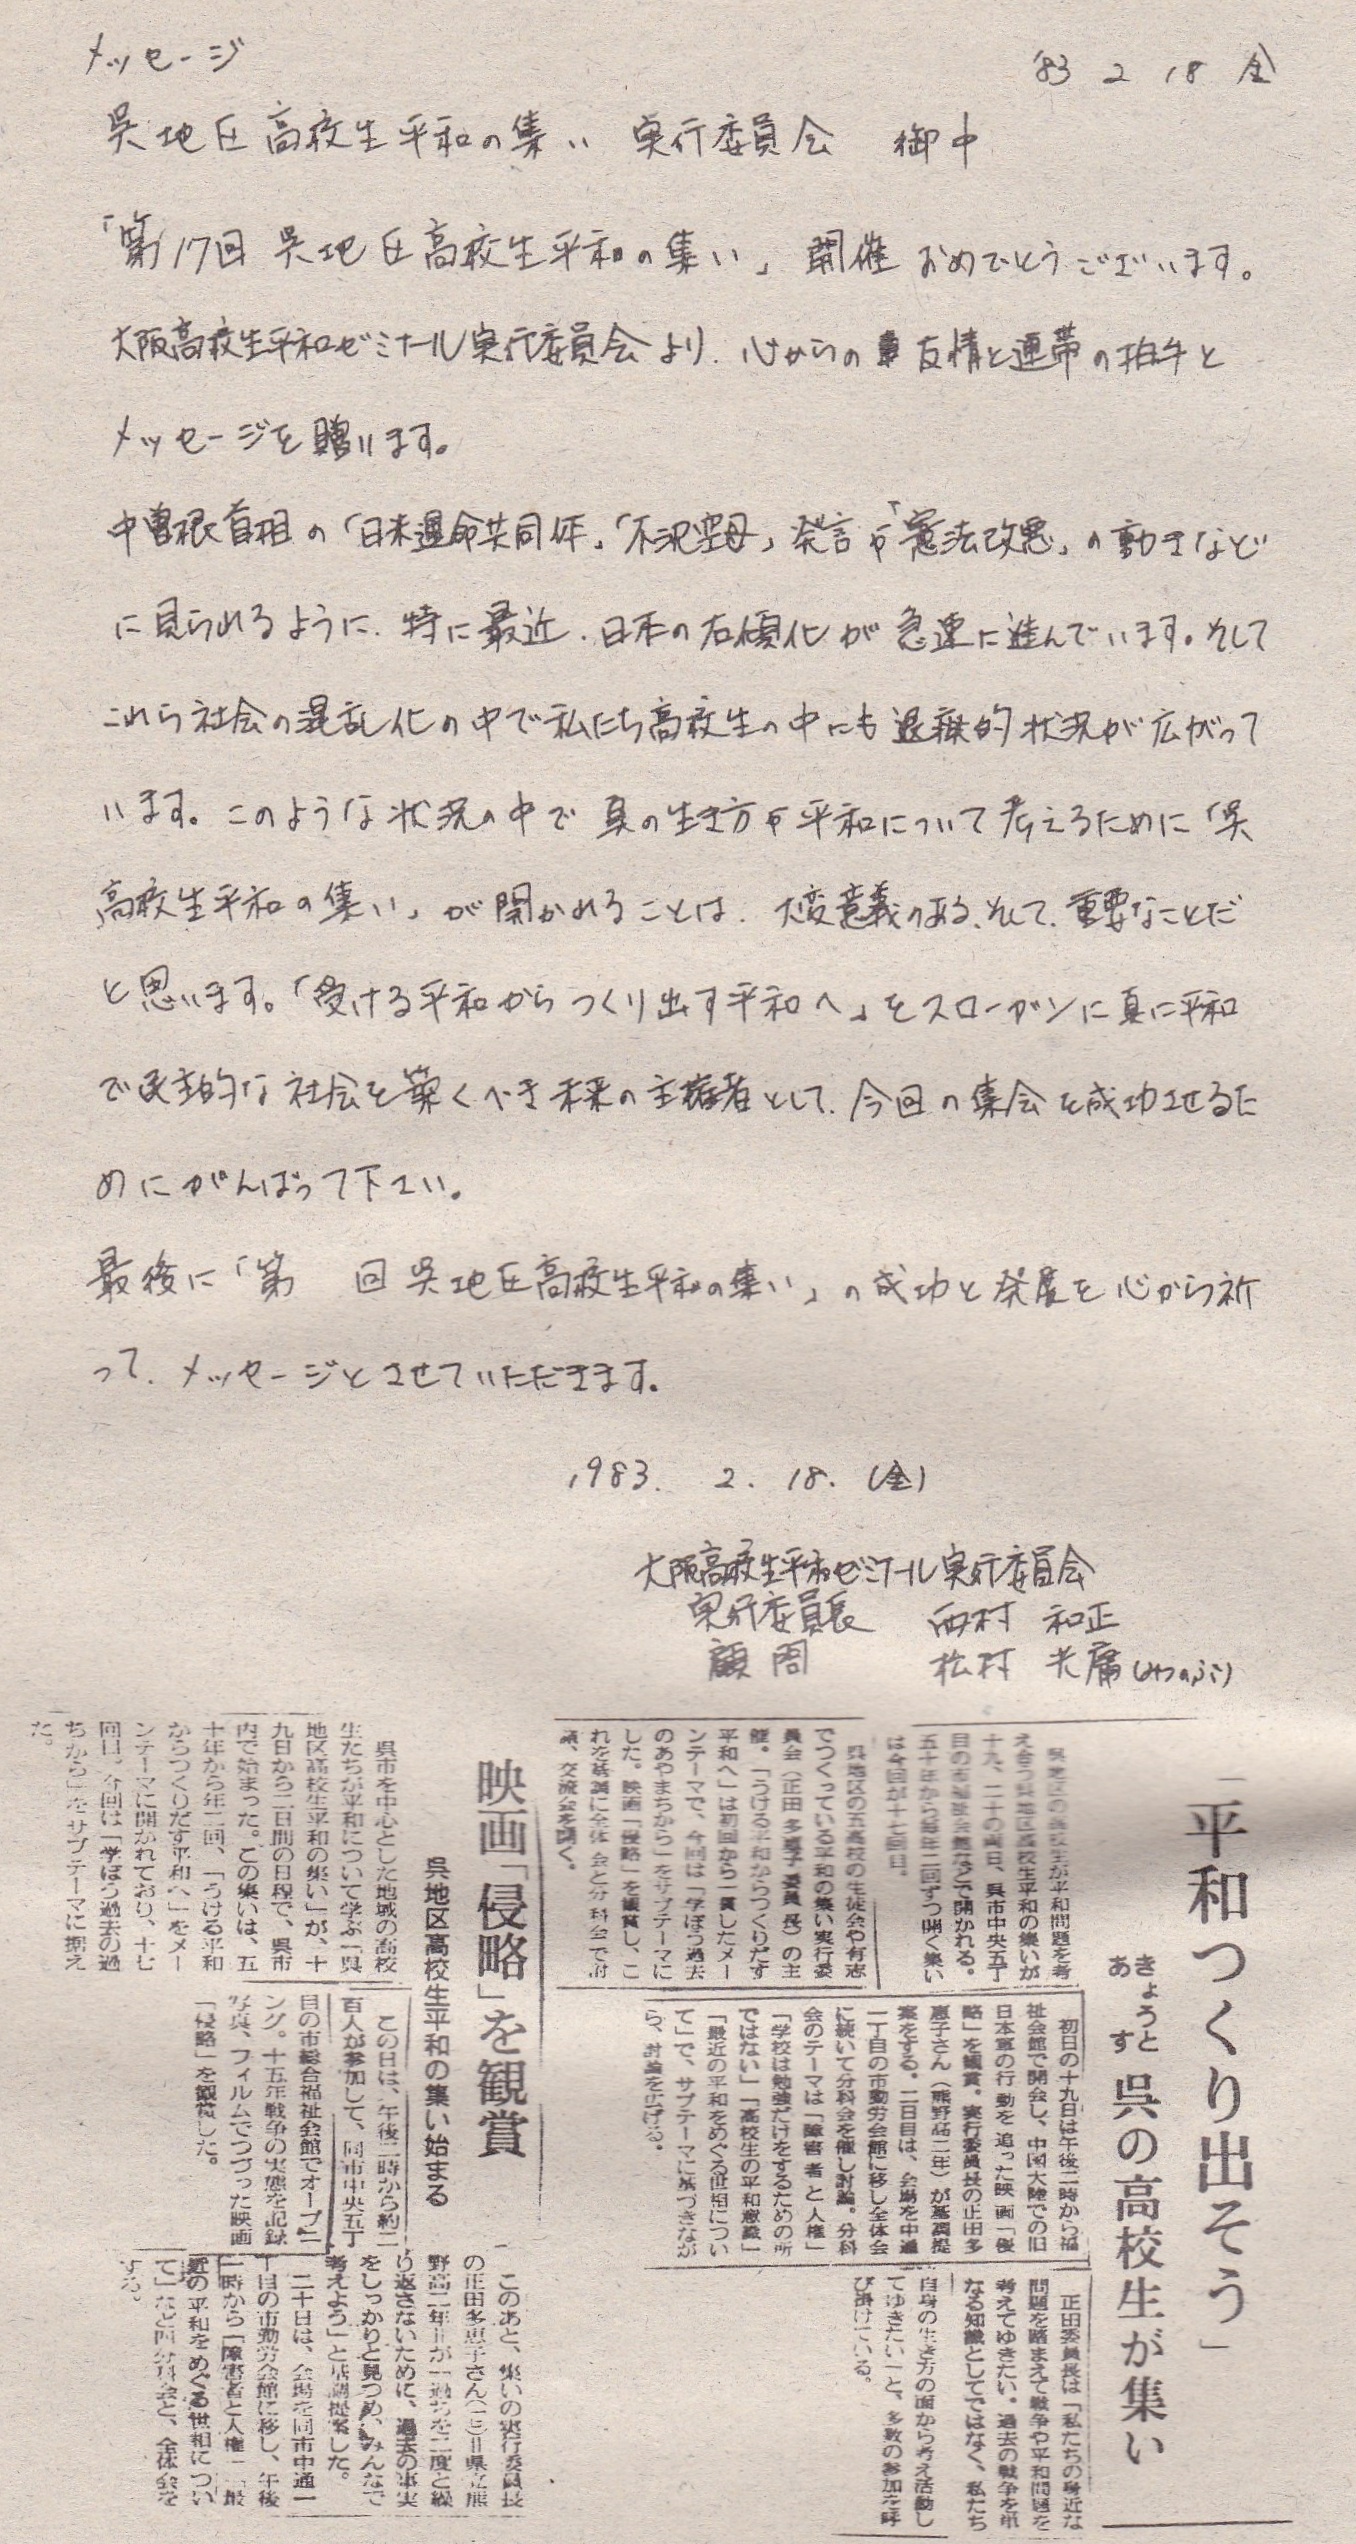 メッセージ
'83 2 18 金
呉地区高校生平和の集い 実行委員会 御中
「第17回 呉地区高校生平和の集い」 開催 おめでとうございます。
大阪高校生平和ゼミナール実行委員会より、心からの 友情と連帯の拍手と
メッセージを贈ります。
中曽根首相の「日米運命共同体」「不沈空母」発言や「憲法改悪」の動きなど
に見られるように、特に最近、日本の右傾化が急速に進んでいます。そして
これら社会の混乱化の中で私たち高校生の中にも退廃的状況が広がって
います。このような状況の中で真の生き方や平和について考えるために「呉
高校生平和の集い」が開かれることは、大変意義のある、そして、重要なことだ
と思います。「受ける平和からつくり出す平和へ」をスローガンに真に平和
で民主的な社会を築くべき未来の主権者として、今回の集会を成功させるた
めにがんばって下さい。
最後に「第 回 呉地区高校生平和の集い」の成功と発展を心から祈
って、メッセージとさせていただきます。
1983. 2. 18. (金)
大阪高校生平和ゼミナール実行委員会
実行委員長 西村 和正
顧問 松村 (みつのぶ)
「平和つくり出そう」
きょうと
あす
呉の高校生が集い
呉地区の高校生が平和問題を考
え合う呉地区高校生平和の集いが
十九、二十の両日、呉市中央五丁
目の市福祉会館などで開かれる。
五十年から毎年二回ずつ開く集い
は今回が十七回目。
呉地区の五高校の生徒会や有志
でつくっている平和の集い実行委
員会（正田多恵子委員長）の主
催。「うける平和からつくりだす
平和へ」は初回から一貫したメー
ンテーマで、今回は「学ぼう過去
のあやまちから」をサブテーマに
した。映画「侵略」を観賞し、こ
れを基調に全体会と分科会で討
議、交流会を開く。
初日の十九日は午後二時から福
祉会館で開会し、中国大陸での旧
日本軍の行動を追った映画「侵
略」を観賞。実行委員長の正田多
恵子さん（熊野高二年）が基調提
案をする。二日目は、会場を中通
一丁目の市勤労会館に移し全体会
に続いて分科会を催し討論。分科
会のテーマは「障害者と人権」
「学校は勉強だけをするための所
ではない」「高校生の平和意識」
「最近の平和をめぐる世相につい
て」で、サブテーマに基づきなが
ら、討論を広げる。
正田委員長は「私たちの身近な
問題を踏まえて戦争や平和問題を
考えてゆきたい。過去の戦争を単
なる知識としてではなく、私たち
自身の生き方の面から考え活動し
てゆきたい」と、多数の参加を呼
び掛けている。
映画「侵略」を観賞
呉地区高校生平和の集い始まる
呉市を中心とした地域の高校
生たちが平和について学ぶ「呉
地区高校生平和の集い」が、十
九日から二日間の日程で、呉市
内で始まった。この集いは、五
十年から年二回、「うける平和
からつくりだす平和へ」をメー
ンテーマに開かれており、十七
回目。今回は「学ぼう過去の過
ちから」をサブテーマに据え
た。
この日は、午後二時から約二
百人が参加して、同市中央五丁
目の市総合福祉会館でオープニ
ング。十五年戦争の実態を記録
写真、フィルムでつづった映画
「侵略」を観賞した。
このあと、集いの実行委員長
の正田多恵子さん＝県立熊
野高二年＝が「過ちを二度と繰
り返さないために、過去の事実
をしっかりと見つめ、みんなで
考えよう」と基調提案した。
二十日は、会場を同市中通一
丁目の市勤労会館に移し、午後
一時から「障害者と人権」「最
近の平和をめぐる世相につい
て」など四分科会と、全体会を
する。